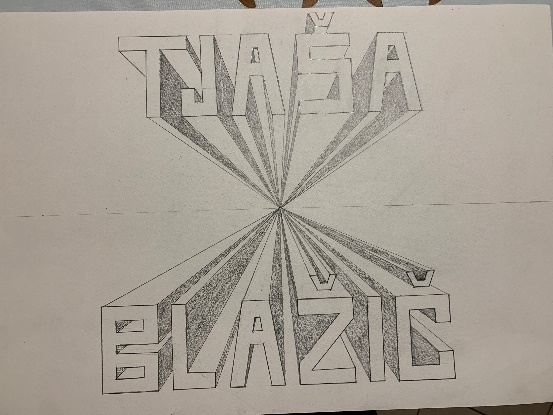 TJAŠA
BLAŽIČ